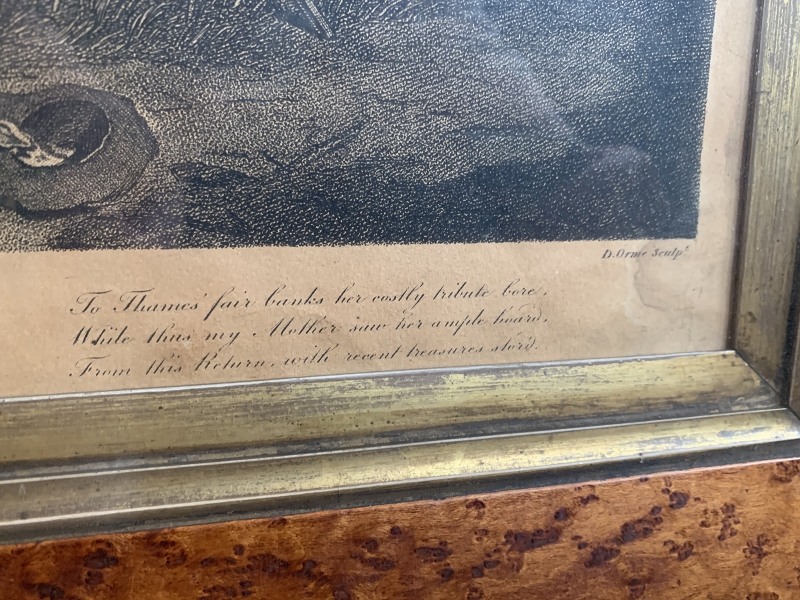 D. Orme Sculpt.
To Thames' fair banks her costly tribute bore,
While thus my Mother saw her ample hoard,
From this Return, with recent treasures stor'd.